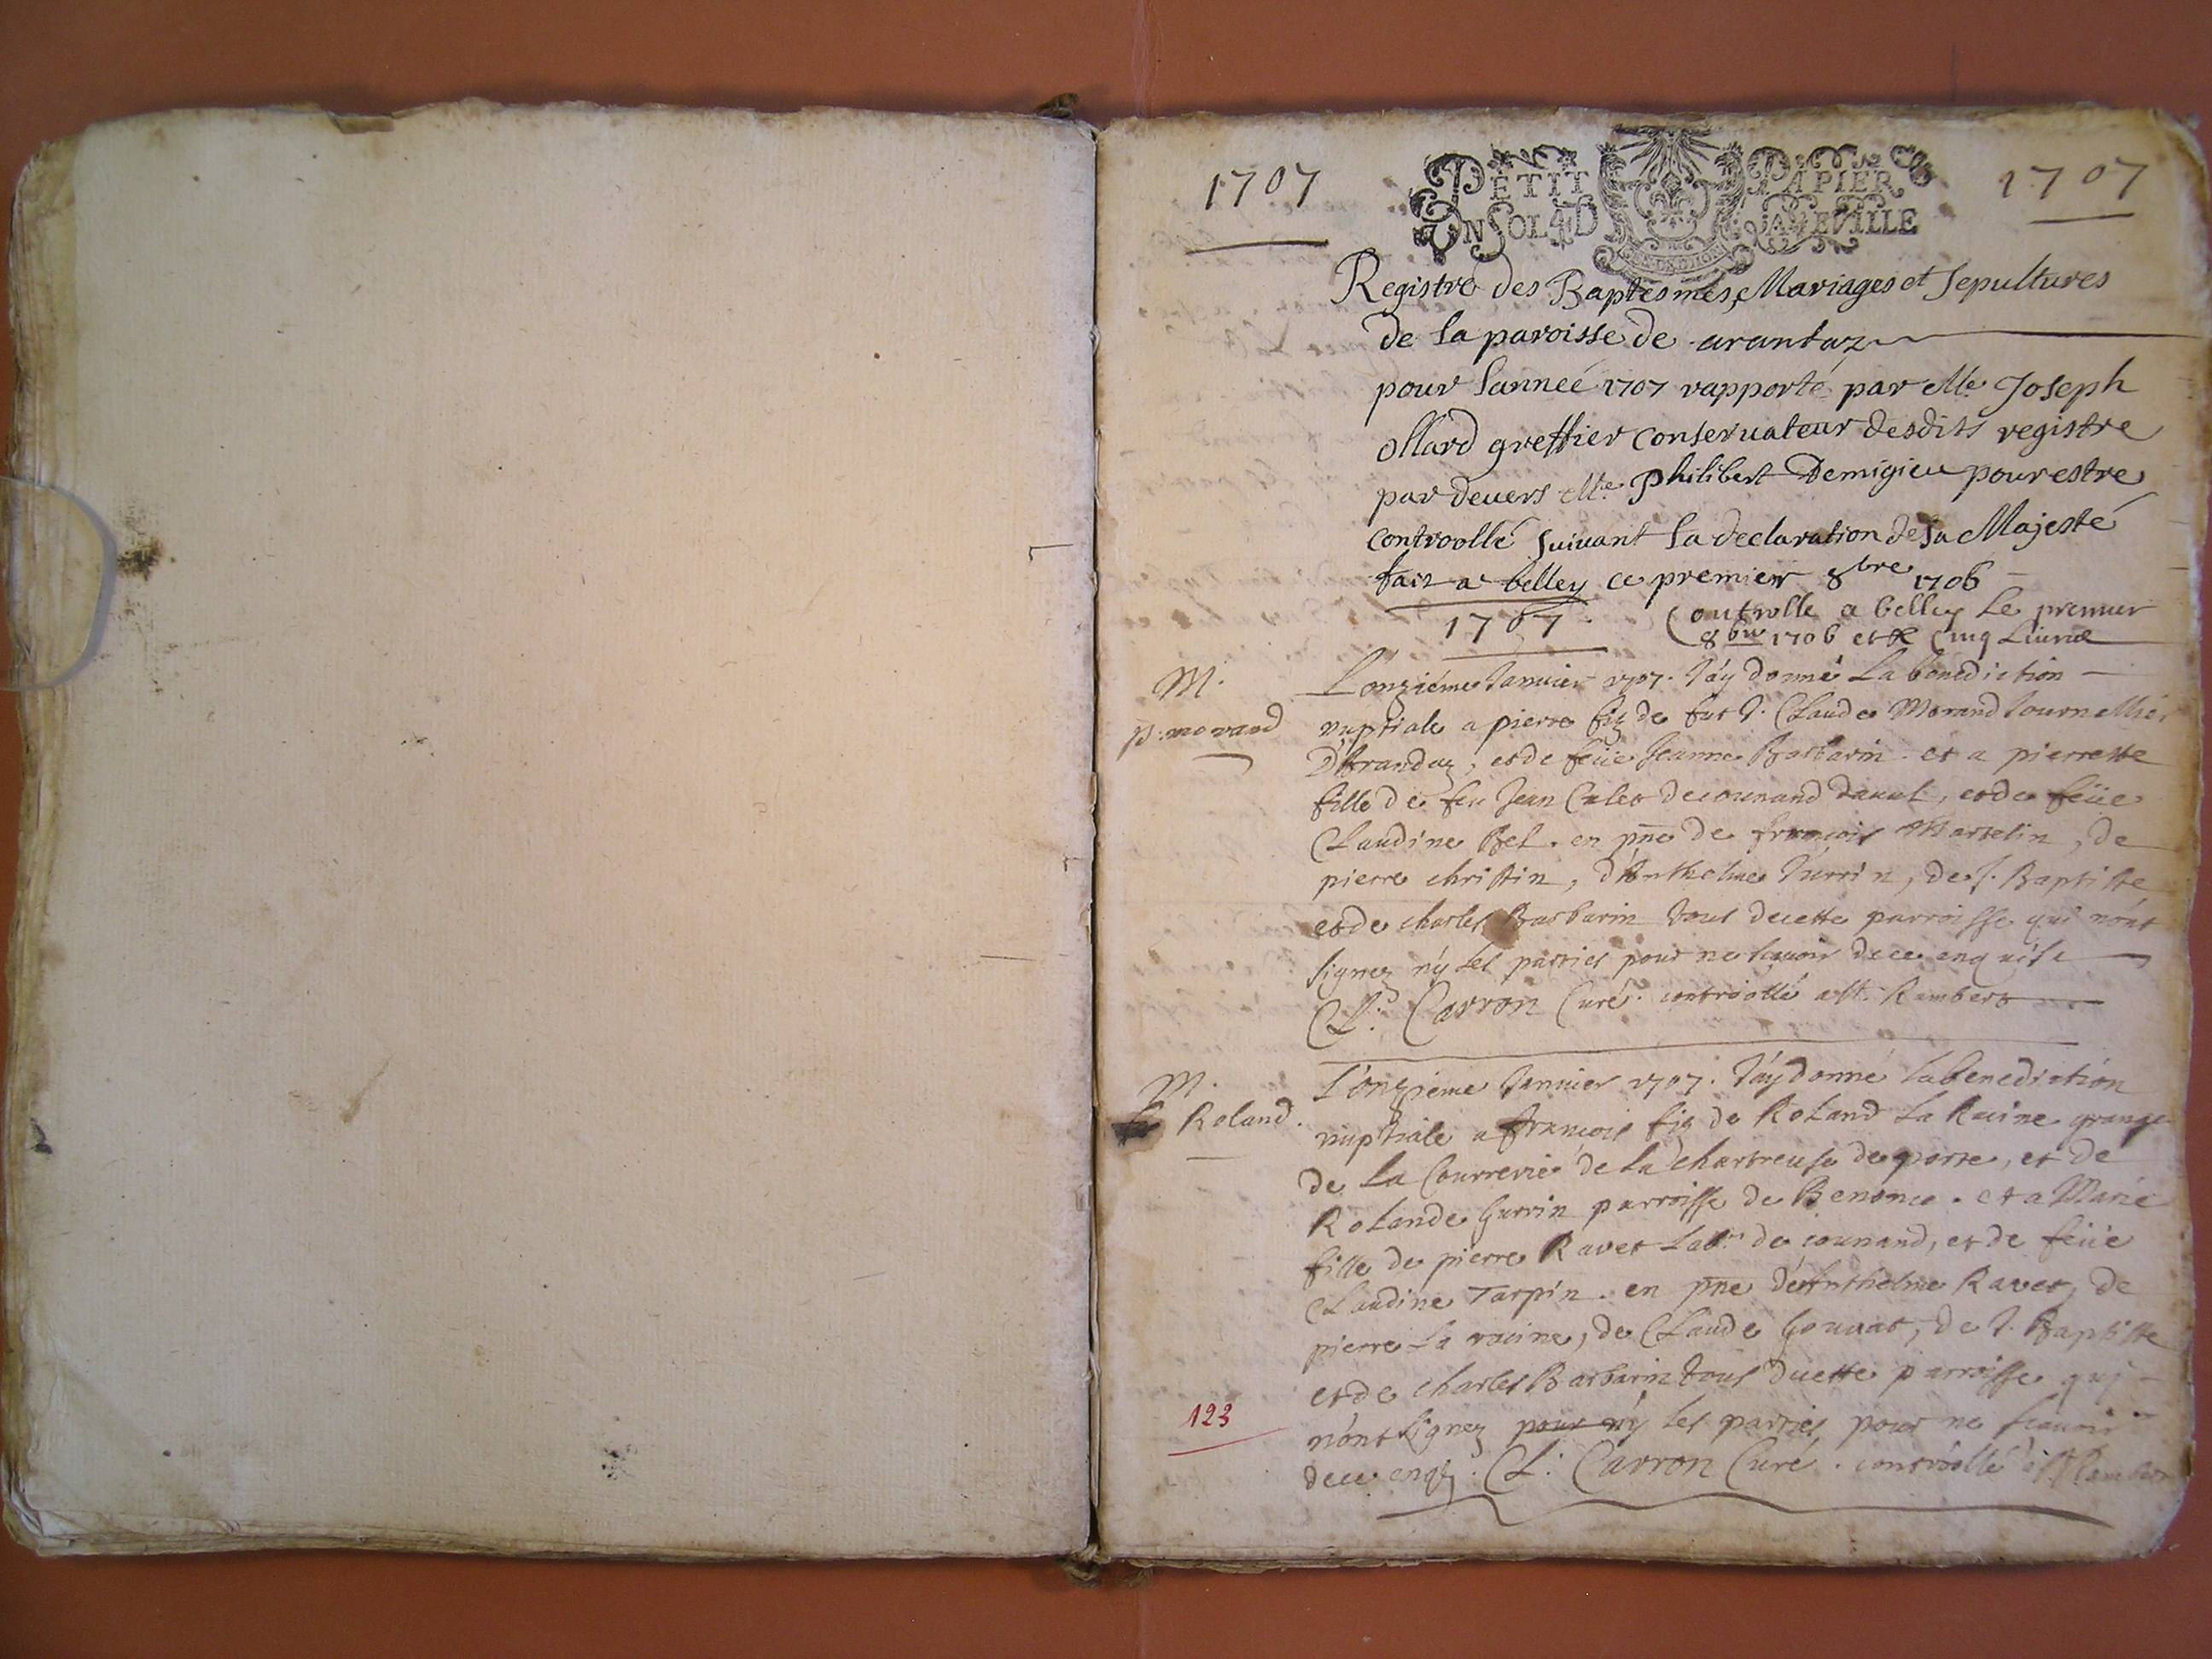 1707
PETIT PAPIER
UN SOL 4 D LA FEUILLE
1707
Registre des Baptesmes, Mariages et Sepultures
de la paroisse de arantaz
pour l'anneé 1707 rapporté par Me Joseph
ollard greffier conseruateur desdits registre
par deuers Me Philibert Demigieu pour estre
controollé suiuant la declaration de sa Majesté
fait a belley ce premier 8bre 1706
1707.
Controlle a belley Le premier
8bre 1706 et Cinq Liures
M.
p. morand
L'onziéme Januier 1707. J'ay donné La benediction
nuptiale a pierre fiz de fut J. Claude Morand Journallier
D'Arandaz, et de feüe Jeanne Barbarin. et a pierrette
fille de feu Jean Culet de counand, et de feüe
Claudine Bel. en pñe de françois Martelin, de
pierre christin, d'Anthelme Jurrin, de J. Baptiste
et de charles Barbarin tous de cette parroisse qui n'ont
signez n'y Les parties pour ne scauoir de ce enquise
Cl. Carron Curé. controollé a St. Rambert
M.
Roland.
L'onziéme Januier 1707. J'ay donné la benediction
nuptiale a françois fiz de Roland La Racine grange
de La Courrerie de la chartreuse de porte, et de
Rolande Gurrin parroisse de Benonce. et a Marie
fille de pierre Ravet Labr. de counand, et de feüe
Claudine Tarpin. en pñe d'Anthelme Ravet, de
pierre La racine, de Claude Gouuat, de J. Baptiste
et de charles Barbarin tous de cette parroisse qui
n'ont signez pour n'y les parties pour ne scauoir
de ce enqz. Cl. Carron Curé. controollé a St Rambert
123